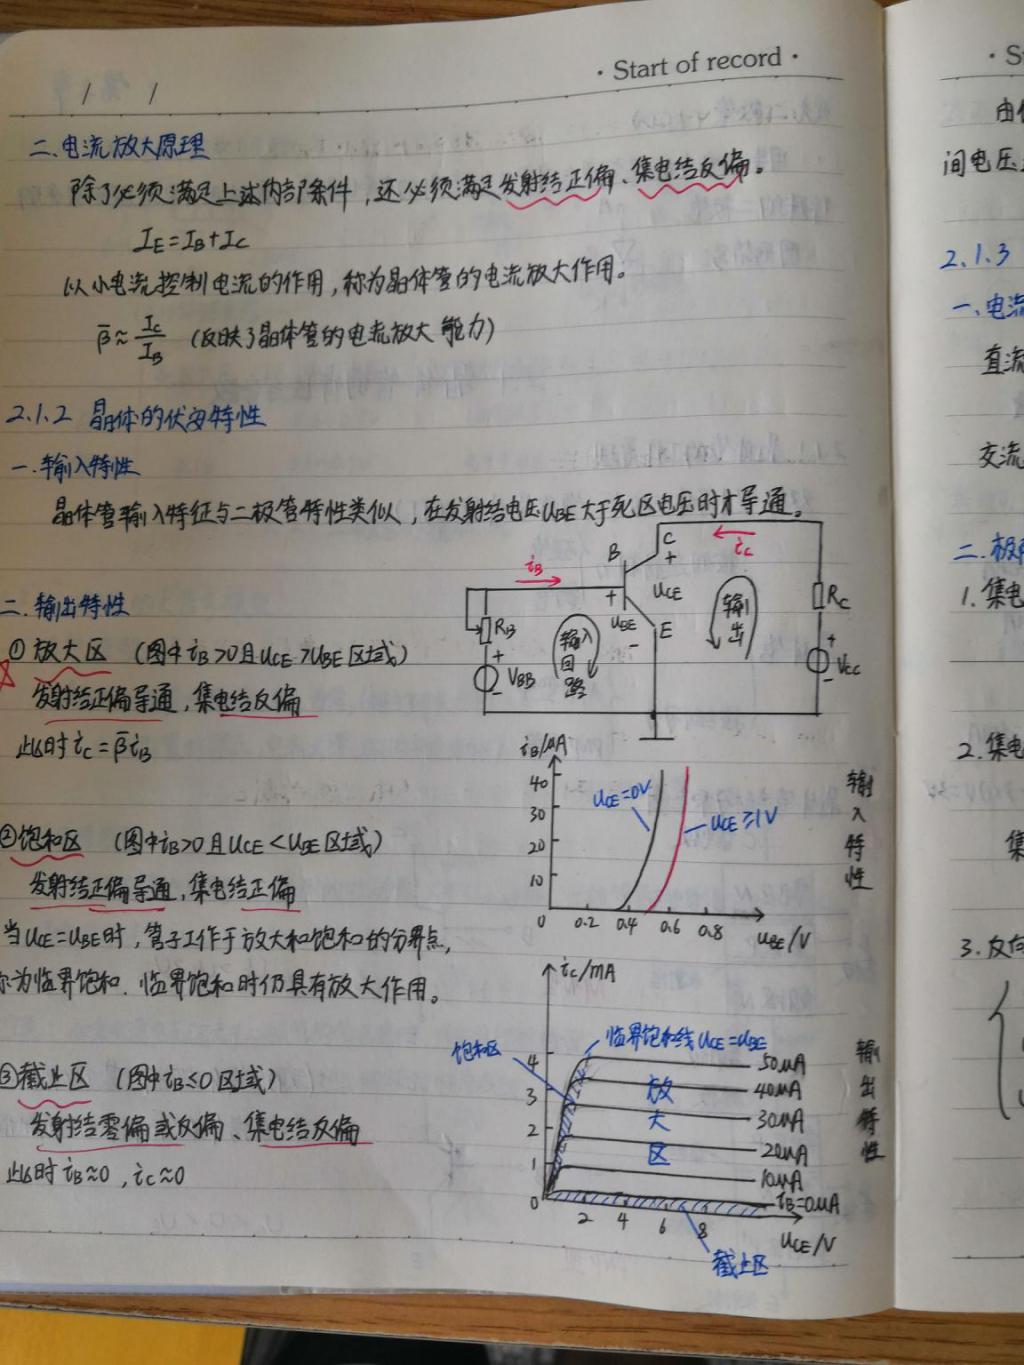 · Start of record ·
/ /
二.电流放大原理
除了必须满足上述内部条件，还必须满足发射结正偏、集电结反偏。
IE=IB+IC
以小电流控制电流的作用，称为晶体管的电流放大作用。
β̄≈IC/IB （反映了晶体管的电流放大能力）
2.1.2 晶体的伏安特性
一.输入特性
晶体管输入特征与二极管特性类似，在发射结电压UBE大于死区电压时才导通。
二.输出特性
①放大区 （图中iB>0且UCE>UBE区域）
发射结正偏导通，集电结反偏
此时iC=β̄iB
②饱和区 （图中iB>0且UCE<UBE区域）
发射结正偏导通，集电结正偏
当UCE=UBE时，管子工作于放大和饱和的分界点，
称为临界饱和.临界饱和时仍具有放大作用。
③截止区 （图中iB≤0区域）
发射结零偏或反偏、集电结反偏
此时iB≈0，iC≈0
iB
B
C
+
iC
UCE
+
UBE
−
−
E
RB
+
VBB
−
输入回路
输出
RC
+
VCC
−
iB/μA
40
30
20
10
0
0.2 0.4 0.6 0.8
UBE/V
UCE=0V
UCE≥1V
输入特性
iC/mA
4
3
2
1
0
2 4 6 8
UCE/V
饱和区
临界饱和线UCE=UBE
放大区
50μA
40μA
30μA
20μA
10μA
iB=0μA
截止区
输出特性
间电压
2.1.3
一.电流
直流
交流
1.集电
2.集电
集
3.反向